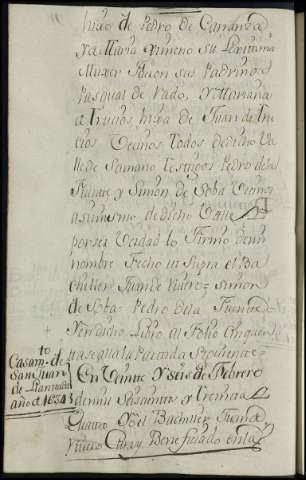 hijo de Pedro de Carranza
y a Maria Ximeno su Lexitima
Muxer fueron sus Padrinos
Pasqual de Vado, y Mariana
de Trucios hixa de Juan de Tru
cios Vecinos todos de dicho Va
lle de Samano testigos Pedro de la
Fuente y Simon de Soba Vecinos
asimismo de dicho Valle
por ser Verdad lo firmo de mi
nombre fecho ut supra el Ba
chiller Juan de simon
de Soba Pedro de la Fuente
dicho Libro al folio cinquen
ta se qual la Partida siguiente
Casamto. de
San Juan
de
año de 1634
En Veinte y seis de Febrero
de mill seiscientos y treinta
quatro Yo el Bachiller Juan de
Cura y Beneficiado en la